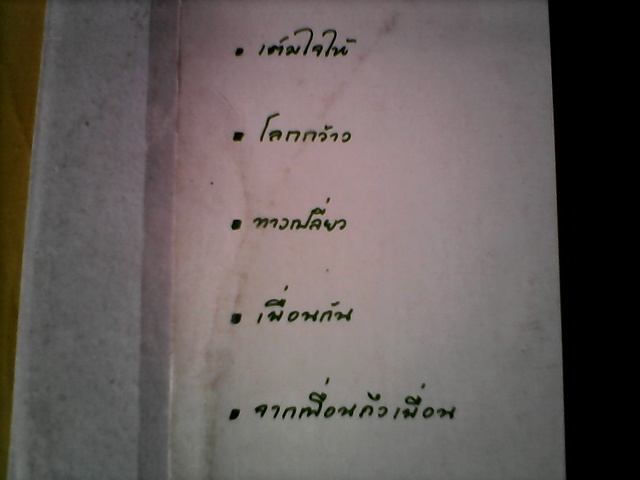 • เต็มใจให้
• โลกกว้าง
• ทางเปลี่ยว
• เพื่อนกัน
• จากเพื่อนถึงเพื่อน